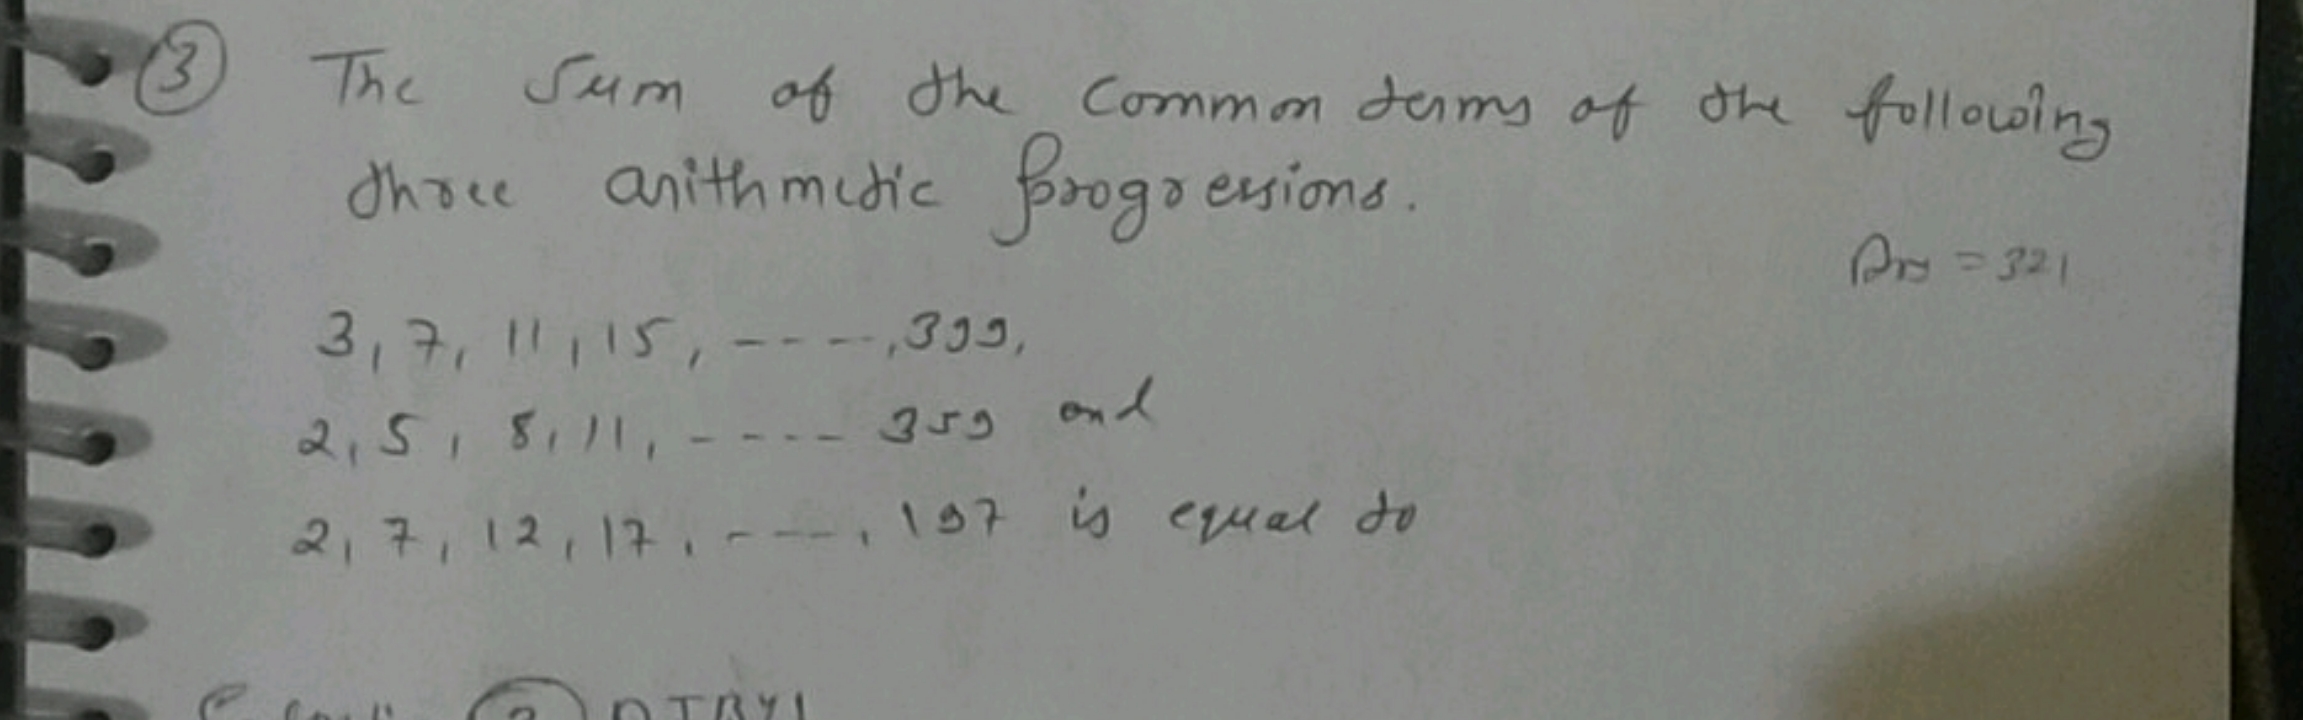 ③ The sum of the common terms of the following
three arithmetic progressions.
Ans = 321
3, 7, 11, 15, ----, 399,
2, 5, 8, 11, ---- 359 and
2, 7, 12, 17, ----, 197 is equal to